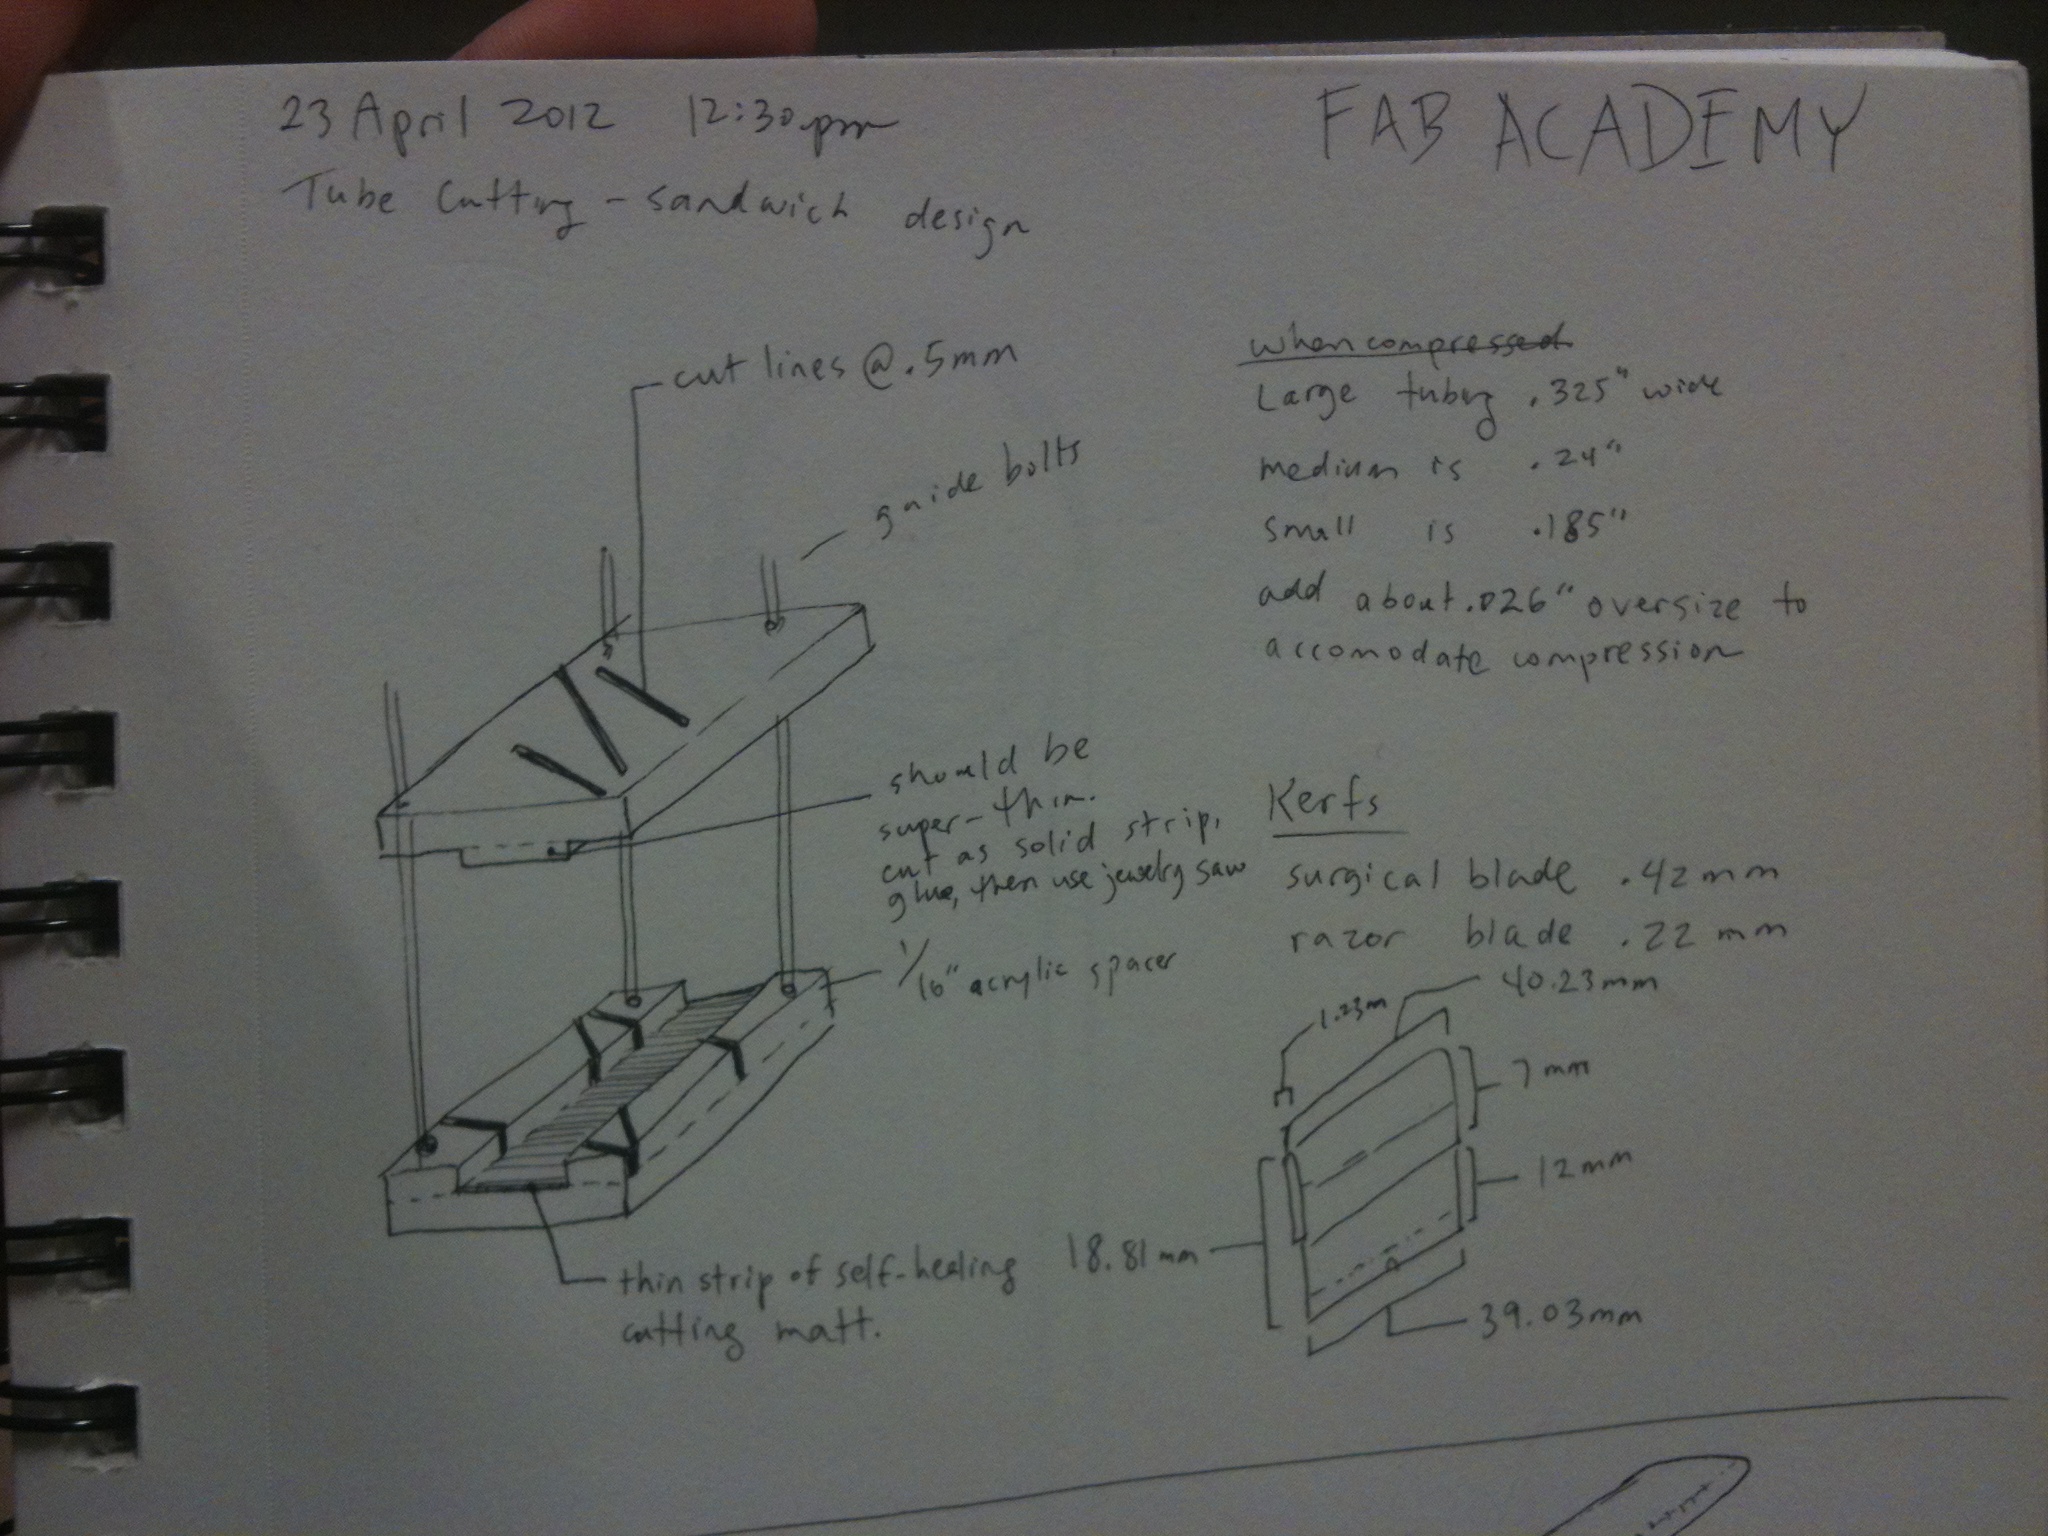 23 April 2012 12:30pm
FAB ACADEMY
Tube Cutting - sandwich design
cut lines @ .5mm
guide bolts
when compressed
Large tubing .325" wide
medium is .24"
small is .185"
add about .026" oversize to
accomodate compression
should be
super-thin.
cut as solid strip,
glue, then use jewelry saw
1/16" acrylic spacer
thin strip of self-healing
cutting matt.
Kerfs
surgical blade .42mm
razor blade .22mm
1.23m
40.23mm
7mm
12mm
18.81mm
39.03mm